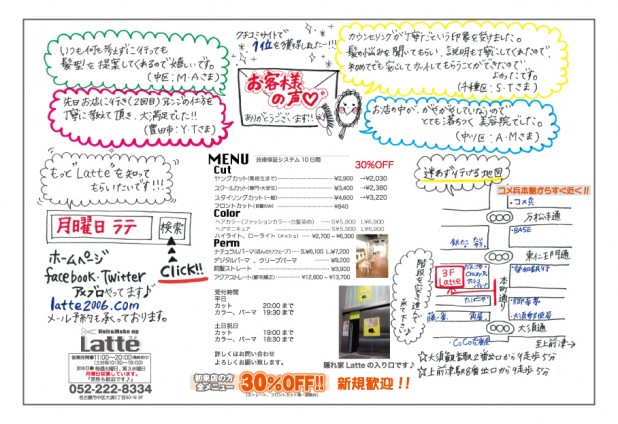 いつも何も考えずに行っても
髪型を提案してくれるので嬉しいです。
(中区:M・Aさま)
先日お店に行き(2回目)アレンジの仕方を
丁寧に教えて頂き、大満足でした!!
(豊田市:Y・Tさま)
クチコミサイトで
1位を獲得しました!!
お客様
の声♡
ありがとうございます!!
カウンセリングが丁寧だという印象を受けました。
髪の悩みを聞いてもらい、説明も丁寧にしてくれたので、
初めてでも安心してカットしてもらうことができたので
よかったです。
(千種区:S・Tさま)
お店の中が、がちゃがちゃしていないので
とても落ちつく美容院でした。
(中川区:A・Mさま)
もっと"Latte"を知って
もらいたいです!!!
月曜日 ラテ
検索
Click!!
ホームページ
facebook・Twitter
アメブロやってます♪
latte2006.com
メール予約も承っております。
Hair&Make up
Latte
営業時間●11:00~20:00
(土日祝10:30~19:00)
定休日●毎週火曜日、第3水曜日
月曜日営業しています。
*男性も歓迎です♪*
052-222-8334
名古屋市中区大須3丁目30-19 3F
MENU 技術保証システム10日間 30%OFF
Cut
ヤングカット(高校生まで) ¥2,900 →¥2,030
スクールカット(専門・大学生) ¥3,400 →¥2,380
スタイリングカット(一般) ¥4,600 →¥3,220
フロントカット(前髪のみ) ¥840
Color
ヘアカラー(ファッションカラー・白髪染め) S¥5,900 L¥6,900
ヘアマニキュア S¥5,900 L¥6,900
ハイライト、ローライト(メッシュ) ¥2,700~¥6,300
Perm
ナチュラルパーマ S¥6,100 L¥7,200
デジタルパーマ、クリープパーマ ¥9,200
前髪ストレート ¥3,900
アクアストレート(縮毛矯正) ¥12,600~¥13,700
受付時間
平日
カット 20:00 まで
カラー、パーマ 19:30 まで
土日祝日
カット 19:00 まで
カラー、パーマ 18:30 まで
詳しくはお問い合わせ
よろしくお願い致します。
隠れ家 Latte の入り口です♪
初来店の方
全メニュー
30%OFF!!
新規歓迎!!
迷わず行ける地図
コメ兵本館からすぐ近く!!
コメ兵
万松寺通
BASE
東仁王門通
3F
Latte
本町通り
階段を突き進んで来て下さい
大須通
CoCo壱番屋
至上前津→
☆大須観音駅2番出口から徒歩5分
☆上前津駅8番出口から徒歩5分